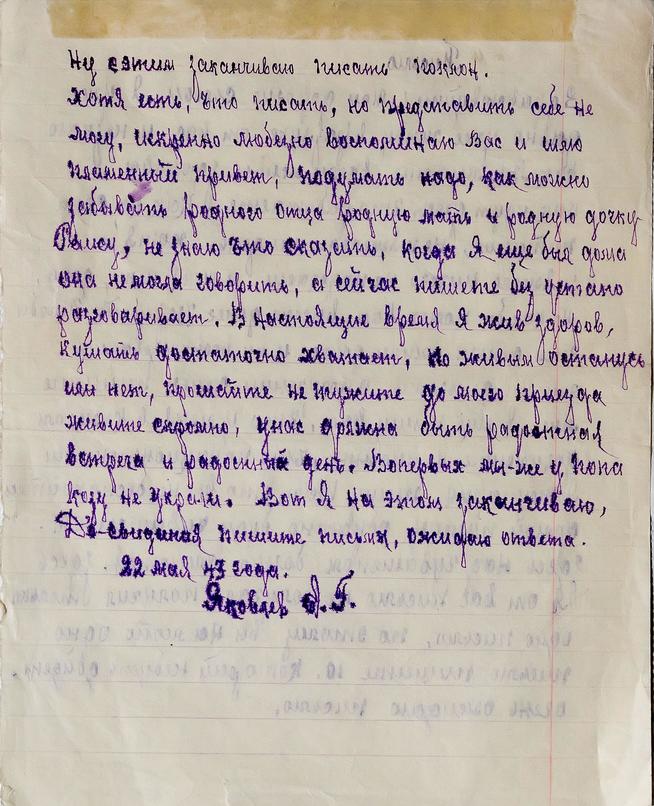 Ну сэтим заканчиваю писать поклон.
Хотя есть, что писать, но представить себе не
могу, искренно любезно воспоминаю Вас и шлю
пламенный привет, подумать надо, как можно
забывать родного отца родную мать и родную дочку
Раису, не знаю что сказать, когда я еще был дома
она немогла говорить, а сейчас пишете без устано
разговаривает. В настоящие время я жив здоров,
кушать достаточно хватает, но живым останусь
или нет, прошайте не тужите до моего приезда
живите скромно, унас должна быть радостная
встреча и радосный день. Вопервых мы-же у попа
козу не украли. Вот я на этом заканчиваю,
До-свидания пишите письма, ожидаю ответа.
22 мая 43 года.
Яковлев Г.